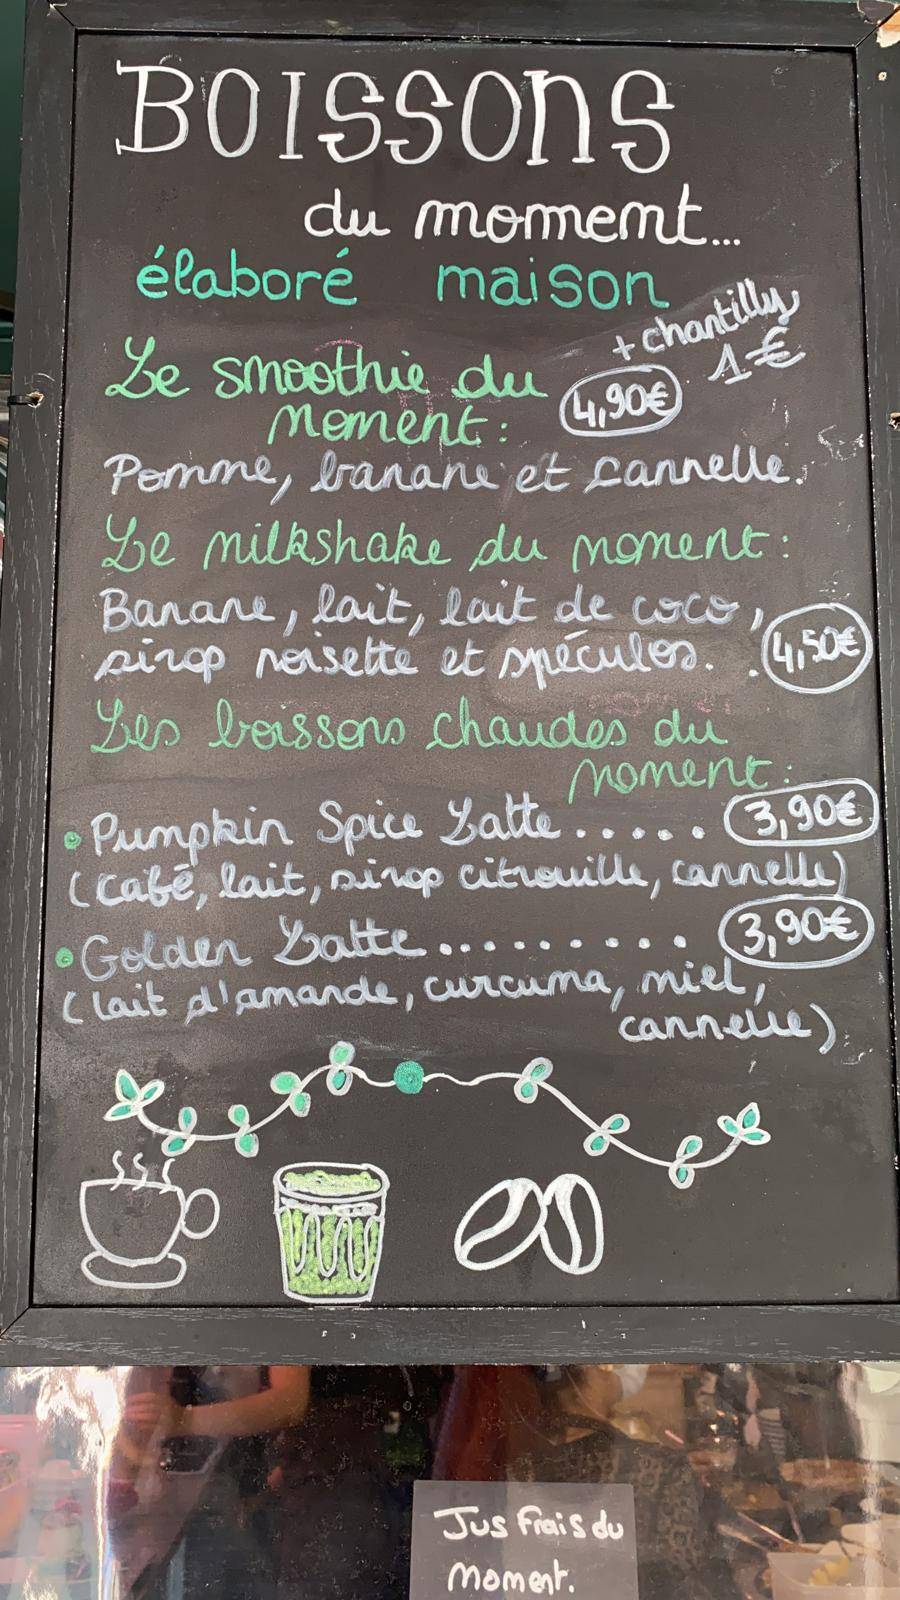 BOISSONS
du moment...
élaboré maison
+ chantilly
1€
Le smoothie du
moment :
4,90€
Pomme, banane et cannelle.
Le milkshake du moment :
Banane, lait, lait de coco,
sirop noisette et spéculos.
4,50€
Les boissons chaudes du
moment :
• Pumpkin Spice Latte ..... 3,90€
(Café, lait, sirop citrouille, cannelle)
• Golden Latte .......... 3,90€
(lait d'amande, curcuma, miel,
cannelle)
Jus frais du
Moment.